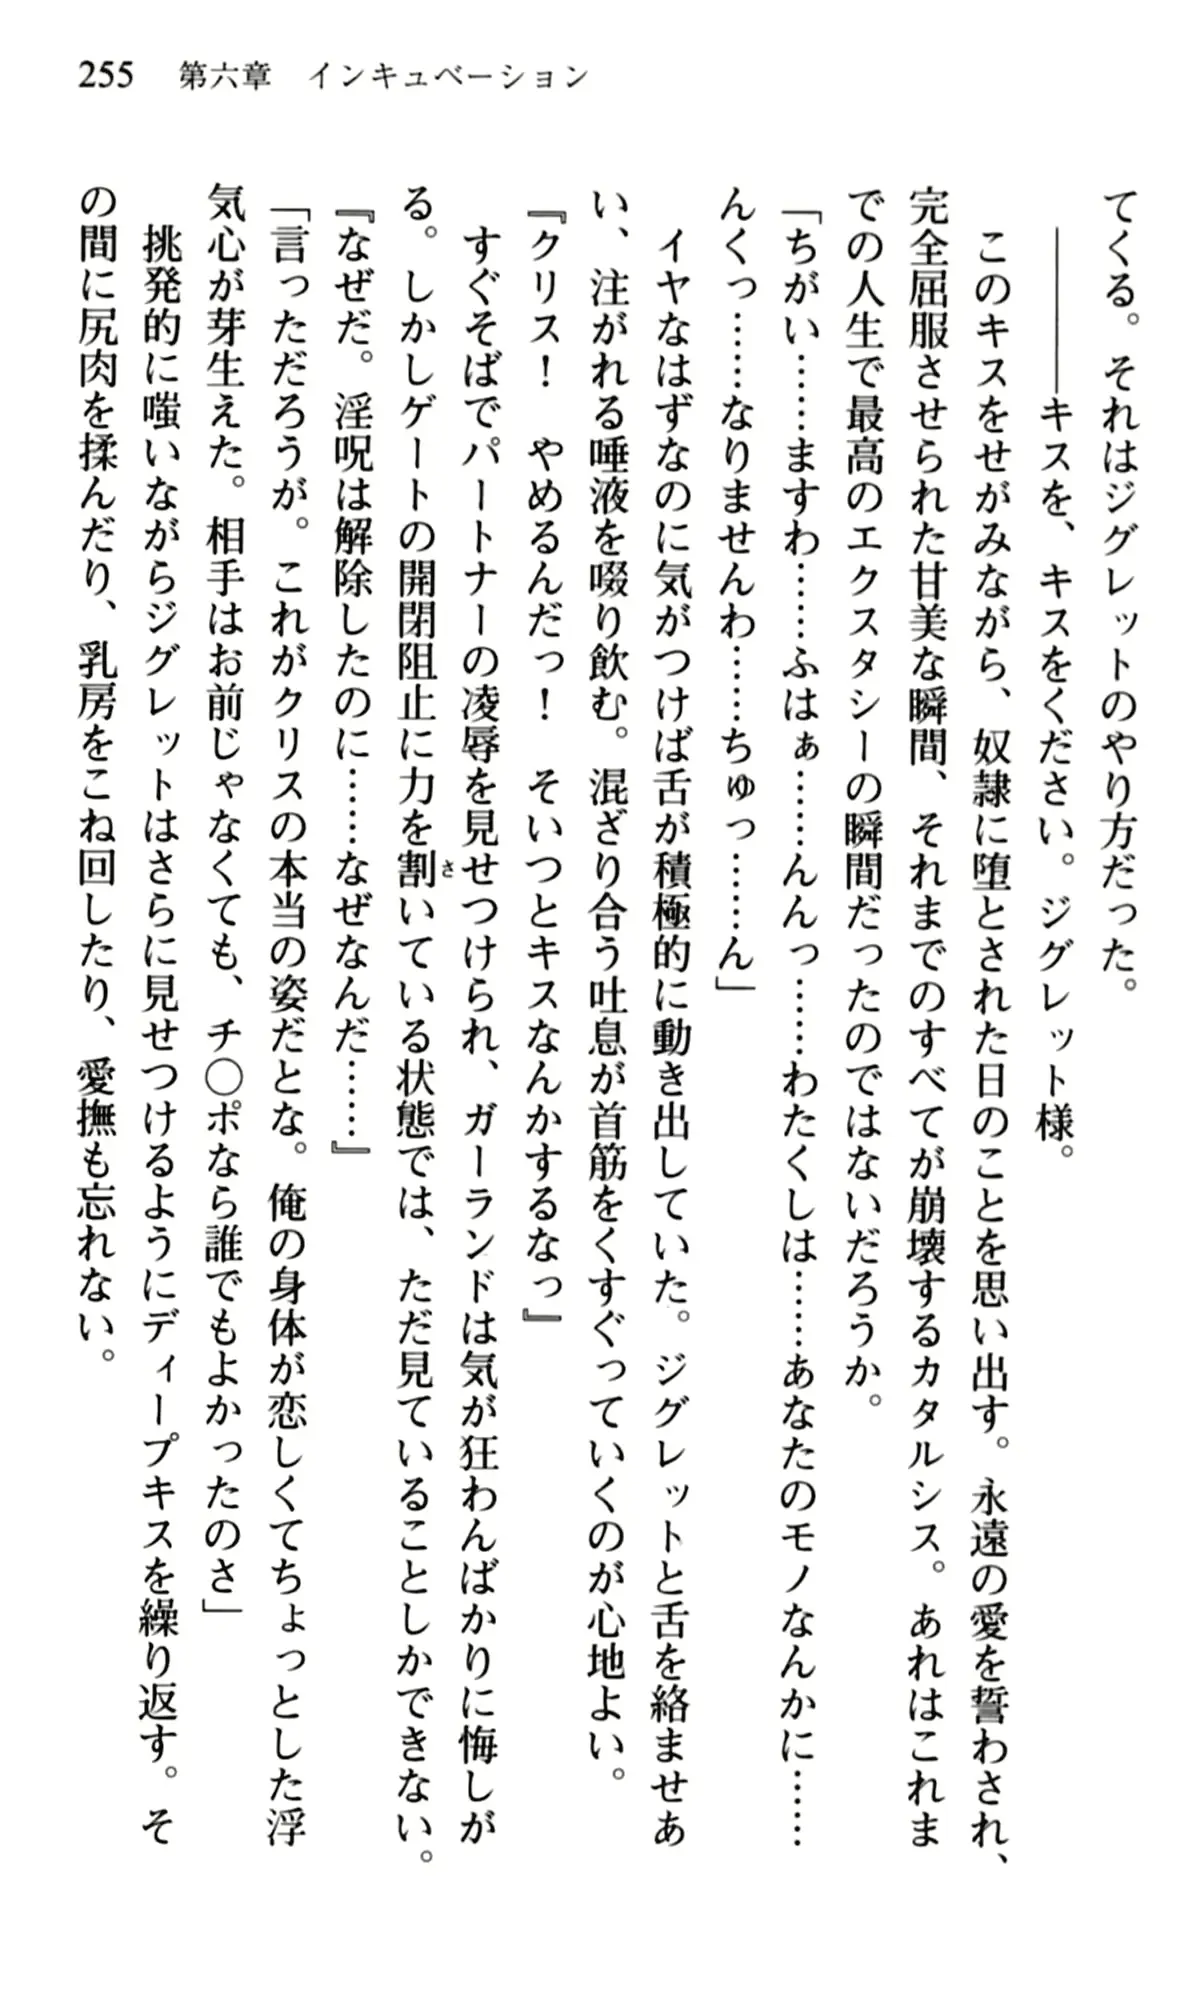 255　第六章　インキュベーション
てくる。それはジグレットのやり方だった。
　――――キスを、キスをください。ジグレット様。
　このキスをせがみながら、奴隷に堕とされた日のことを思い出す。永遠の愛を誓わされ、
完全屈服させられた甘美な瞬間、それまでのすべてが崩壊するカタルシス。あれはこれま
での人生で最高のエクスタシーの瞬間だったのではないだろうか。
「ちがい……ますわ……ふはぁ……んんっ……わたくしは……あなたのモノなんかに……
んくっ……なりませんわ……ちゅっ……ん」
　イヤなはずなのに気がつけば舌が積極的に動き出していた。ジグレットと舌を絡ませあ
い、注がれる唾液を啜り飲む。混ざり合う吐息が首筋をくすぐっていくのが心地よい。
『クリス！　やめるんだっ！　そいつとキスなんかするなっ』
　すぐそばでパートナーの凌辱を見せつけられ、ガーランドは気が狂わんばかりに悔しが
る。しかしゲートの開閉阻止に力を割さいている状態では、ただ見ていることしかできない。
『なぜだ。淫呪は解除したのに……なぜなんだ……』
「言っただろうが。これがクリスの本当の姿だとな。俺の身体が恋しくてちょっとした浮
気心が芽生えた。相手はお前じゃなくても、チ◯ポなら誰でもよかったのさ」
　挑発的に嗤いながらジグレットはさらに見せつけるようにディープキスを繰り返す。そ
の間に尻肉を揉んだり、乳房をこね回したり、愛撫も忘れない。